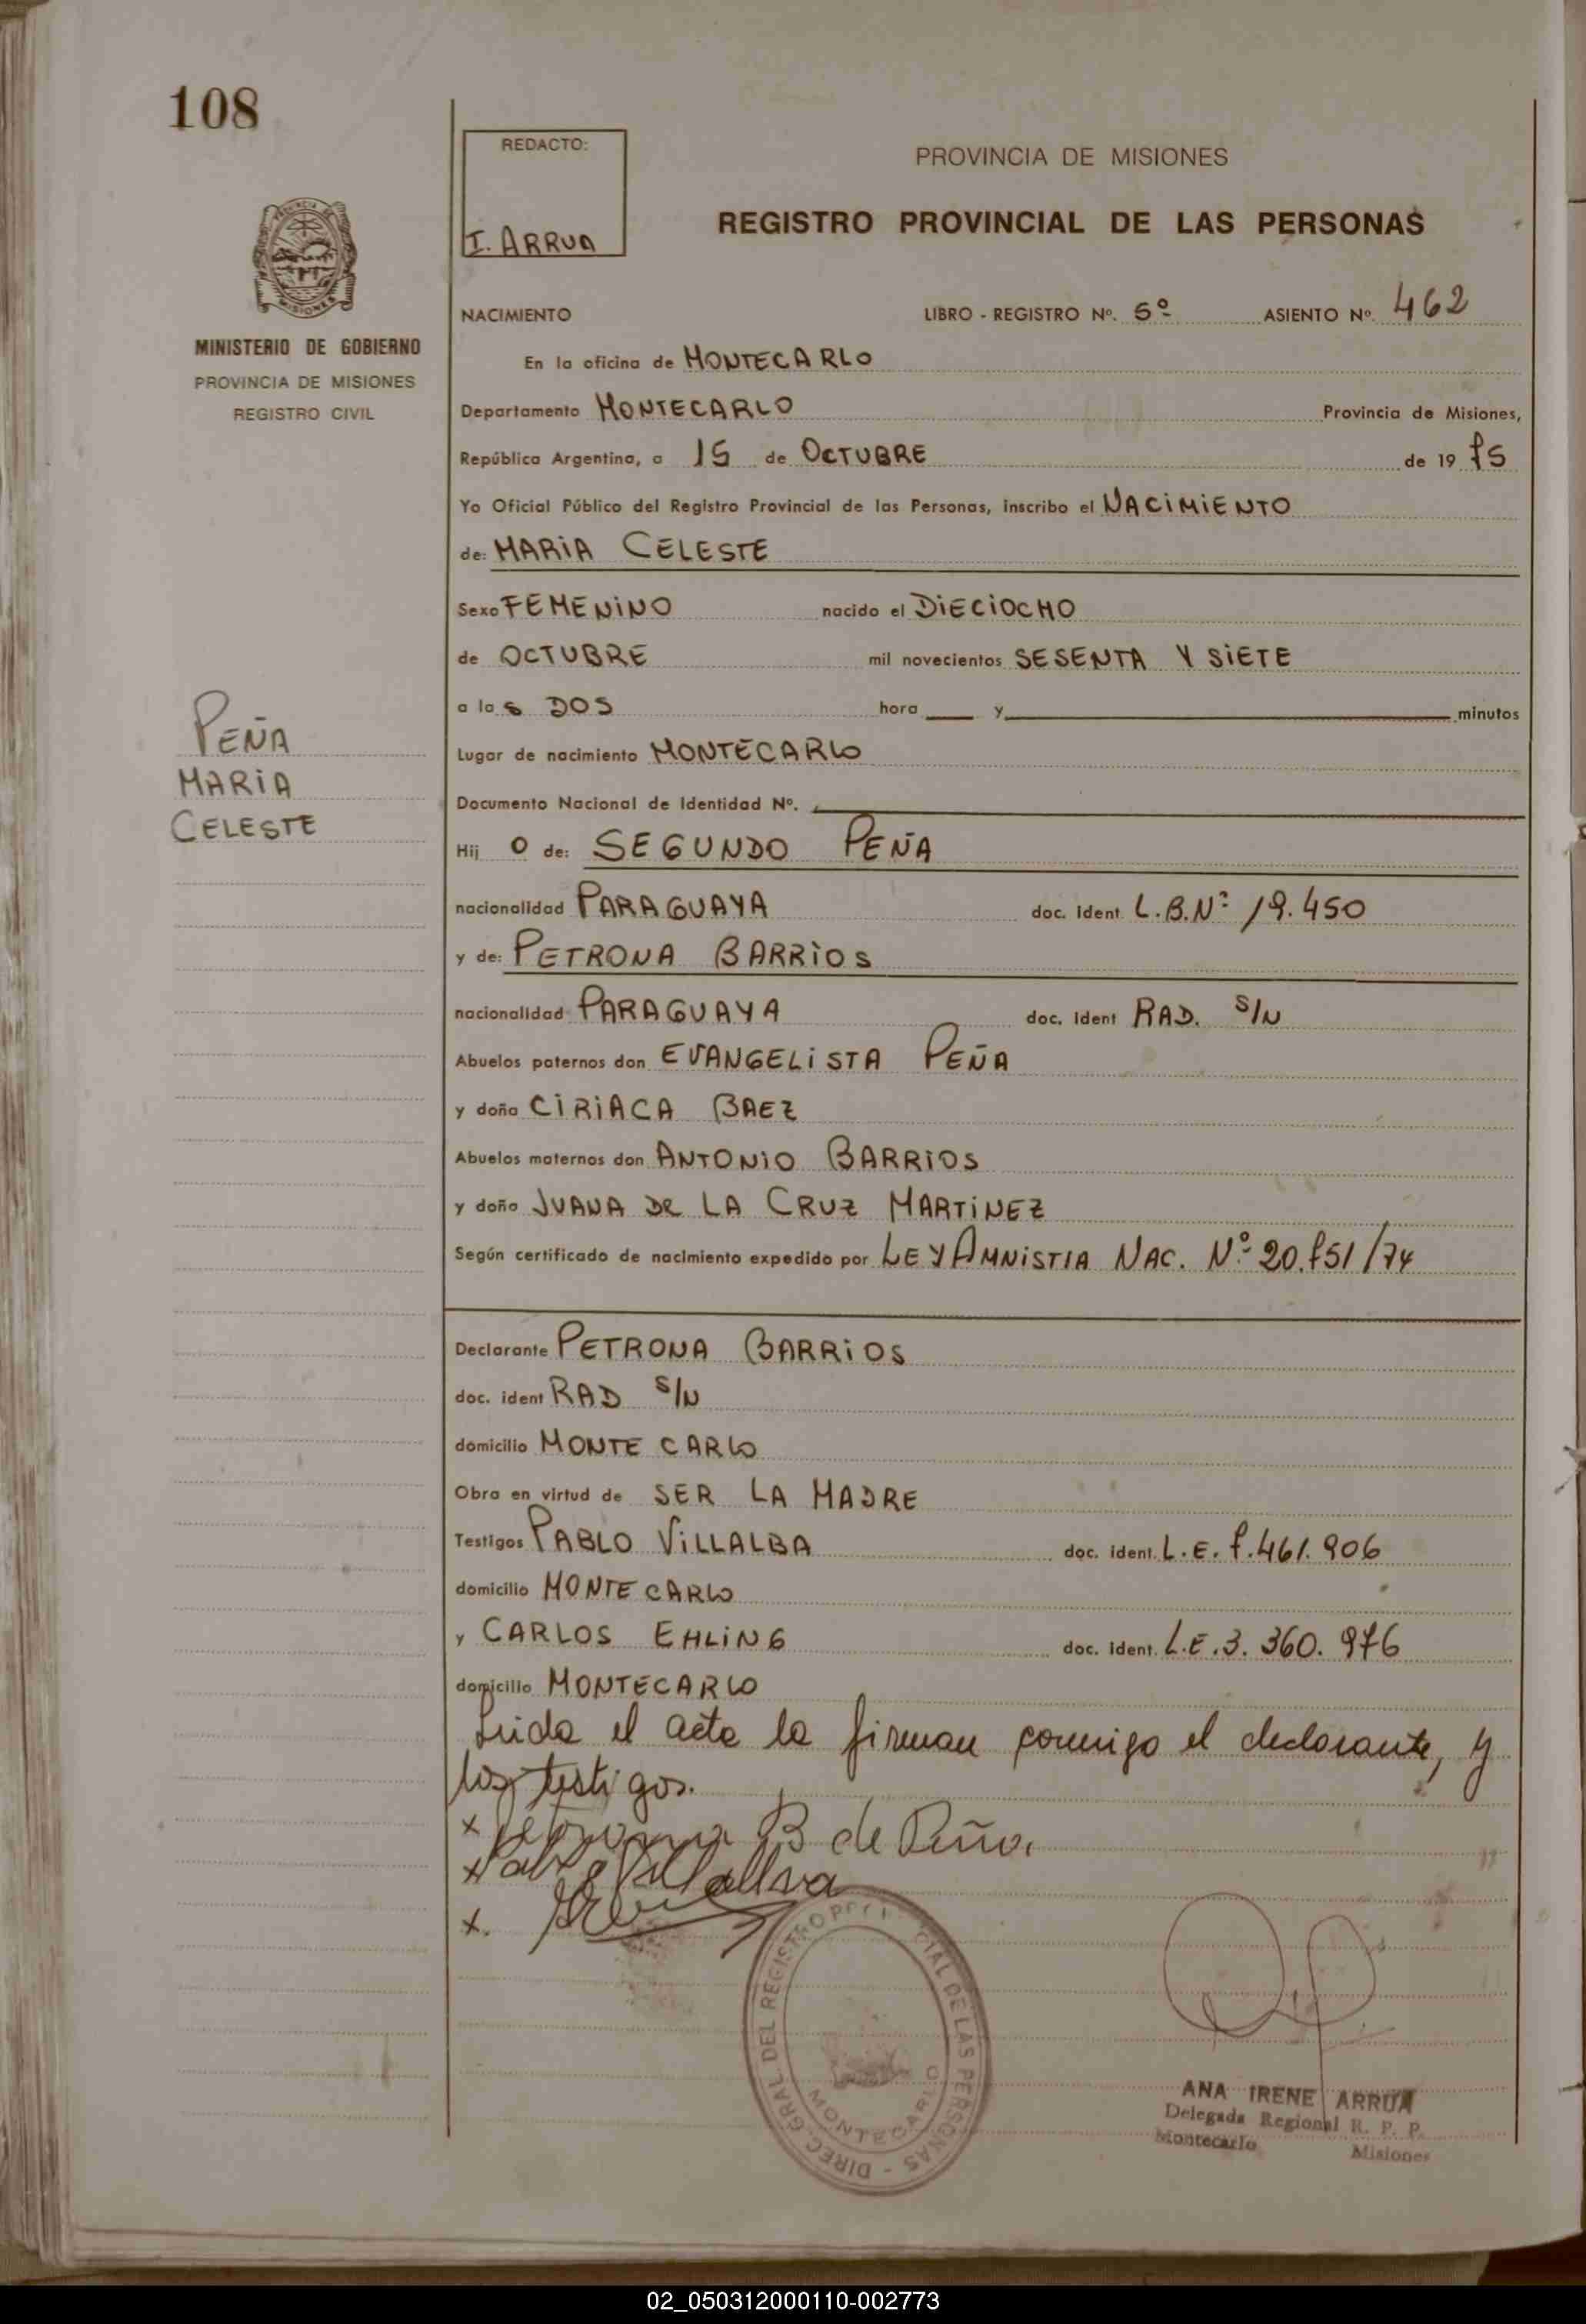 108
REDACTO:
I. ARRUA
PROVINCIA DE MISIONES
REGISTRO PROVINCIAL DE LAS PERSONAS
MINISTERIO DE GOBIERNO
PROVINCIA DE MISIONES
REGISTRO CIVIL
NACIMIENTO LIBRO - REGISTRO Nº. 5º ASIENTO Nº. 462
En la oficina de MONTECARLO
Departamento MONTECARLO Provincia de Misiones,
República Argentina, a 15 de OCTUBRE de 19 75
Yo Oficial Público del Registro Provincial de las Personas, inscribo el NACIMIENTO
de: MARIA CELESTE
Sexo FEMENINO nacido el DIECIOCHO
de OCTUBRE mil novecientos SESENTA Y SIETE
a las DOS hora y minutos
PEÑA
MARIA
CELESTE
Lugar de nacimiento MONTECARLO
Documento Nacional de Identidad Nº.
Hij O de: SEGUNDO PEÑA
nacionalidad PARAGUAYA doc. ident. L.B.Nº 19.450
y de: PETRONA BARRIOS
nacionalidad PARAGUAYA doc. ident RAD. S/N
Abuelos paternos don EVANGELISTA PEÑA
y doña CIRIACA BAEZ
Abuelos maternos don ANTONIO BARRIOS
y doña JUANA DE LA CRUZ MARTINEZ
Según certificado de nacimiento expedido por LEY AMNISTIA NAC. Nº 20.751/74
Declarante PETRONA BARRIOS
doc. ident RAD S/N
domicilio MONTE CARLO
Obra en virtud de SER LA MADRE
Testigos PABLO VILLALBA doc. ident. L.E. 7.461.906
domicilio MONTE CARLO
y CARLOS EHLING doc. ident. L.E.3.360.976
domicilio MONTECARLO
Leida el acta la firman conmigo el declarante, y
los testigos.
x Petrona B de Peña.
x Pablo Villalba
x.
DIREC. GRAL. DEL REGISTRO PROVINCIAL DE LAS PERSONAS -
MONTECARLO
ANA IRENE ARRUA
Delegada Regional R. P. P.
Montecarlo Misiones
02_050312000110-002773